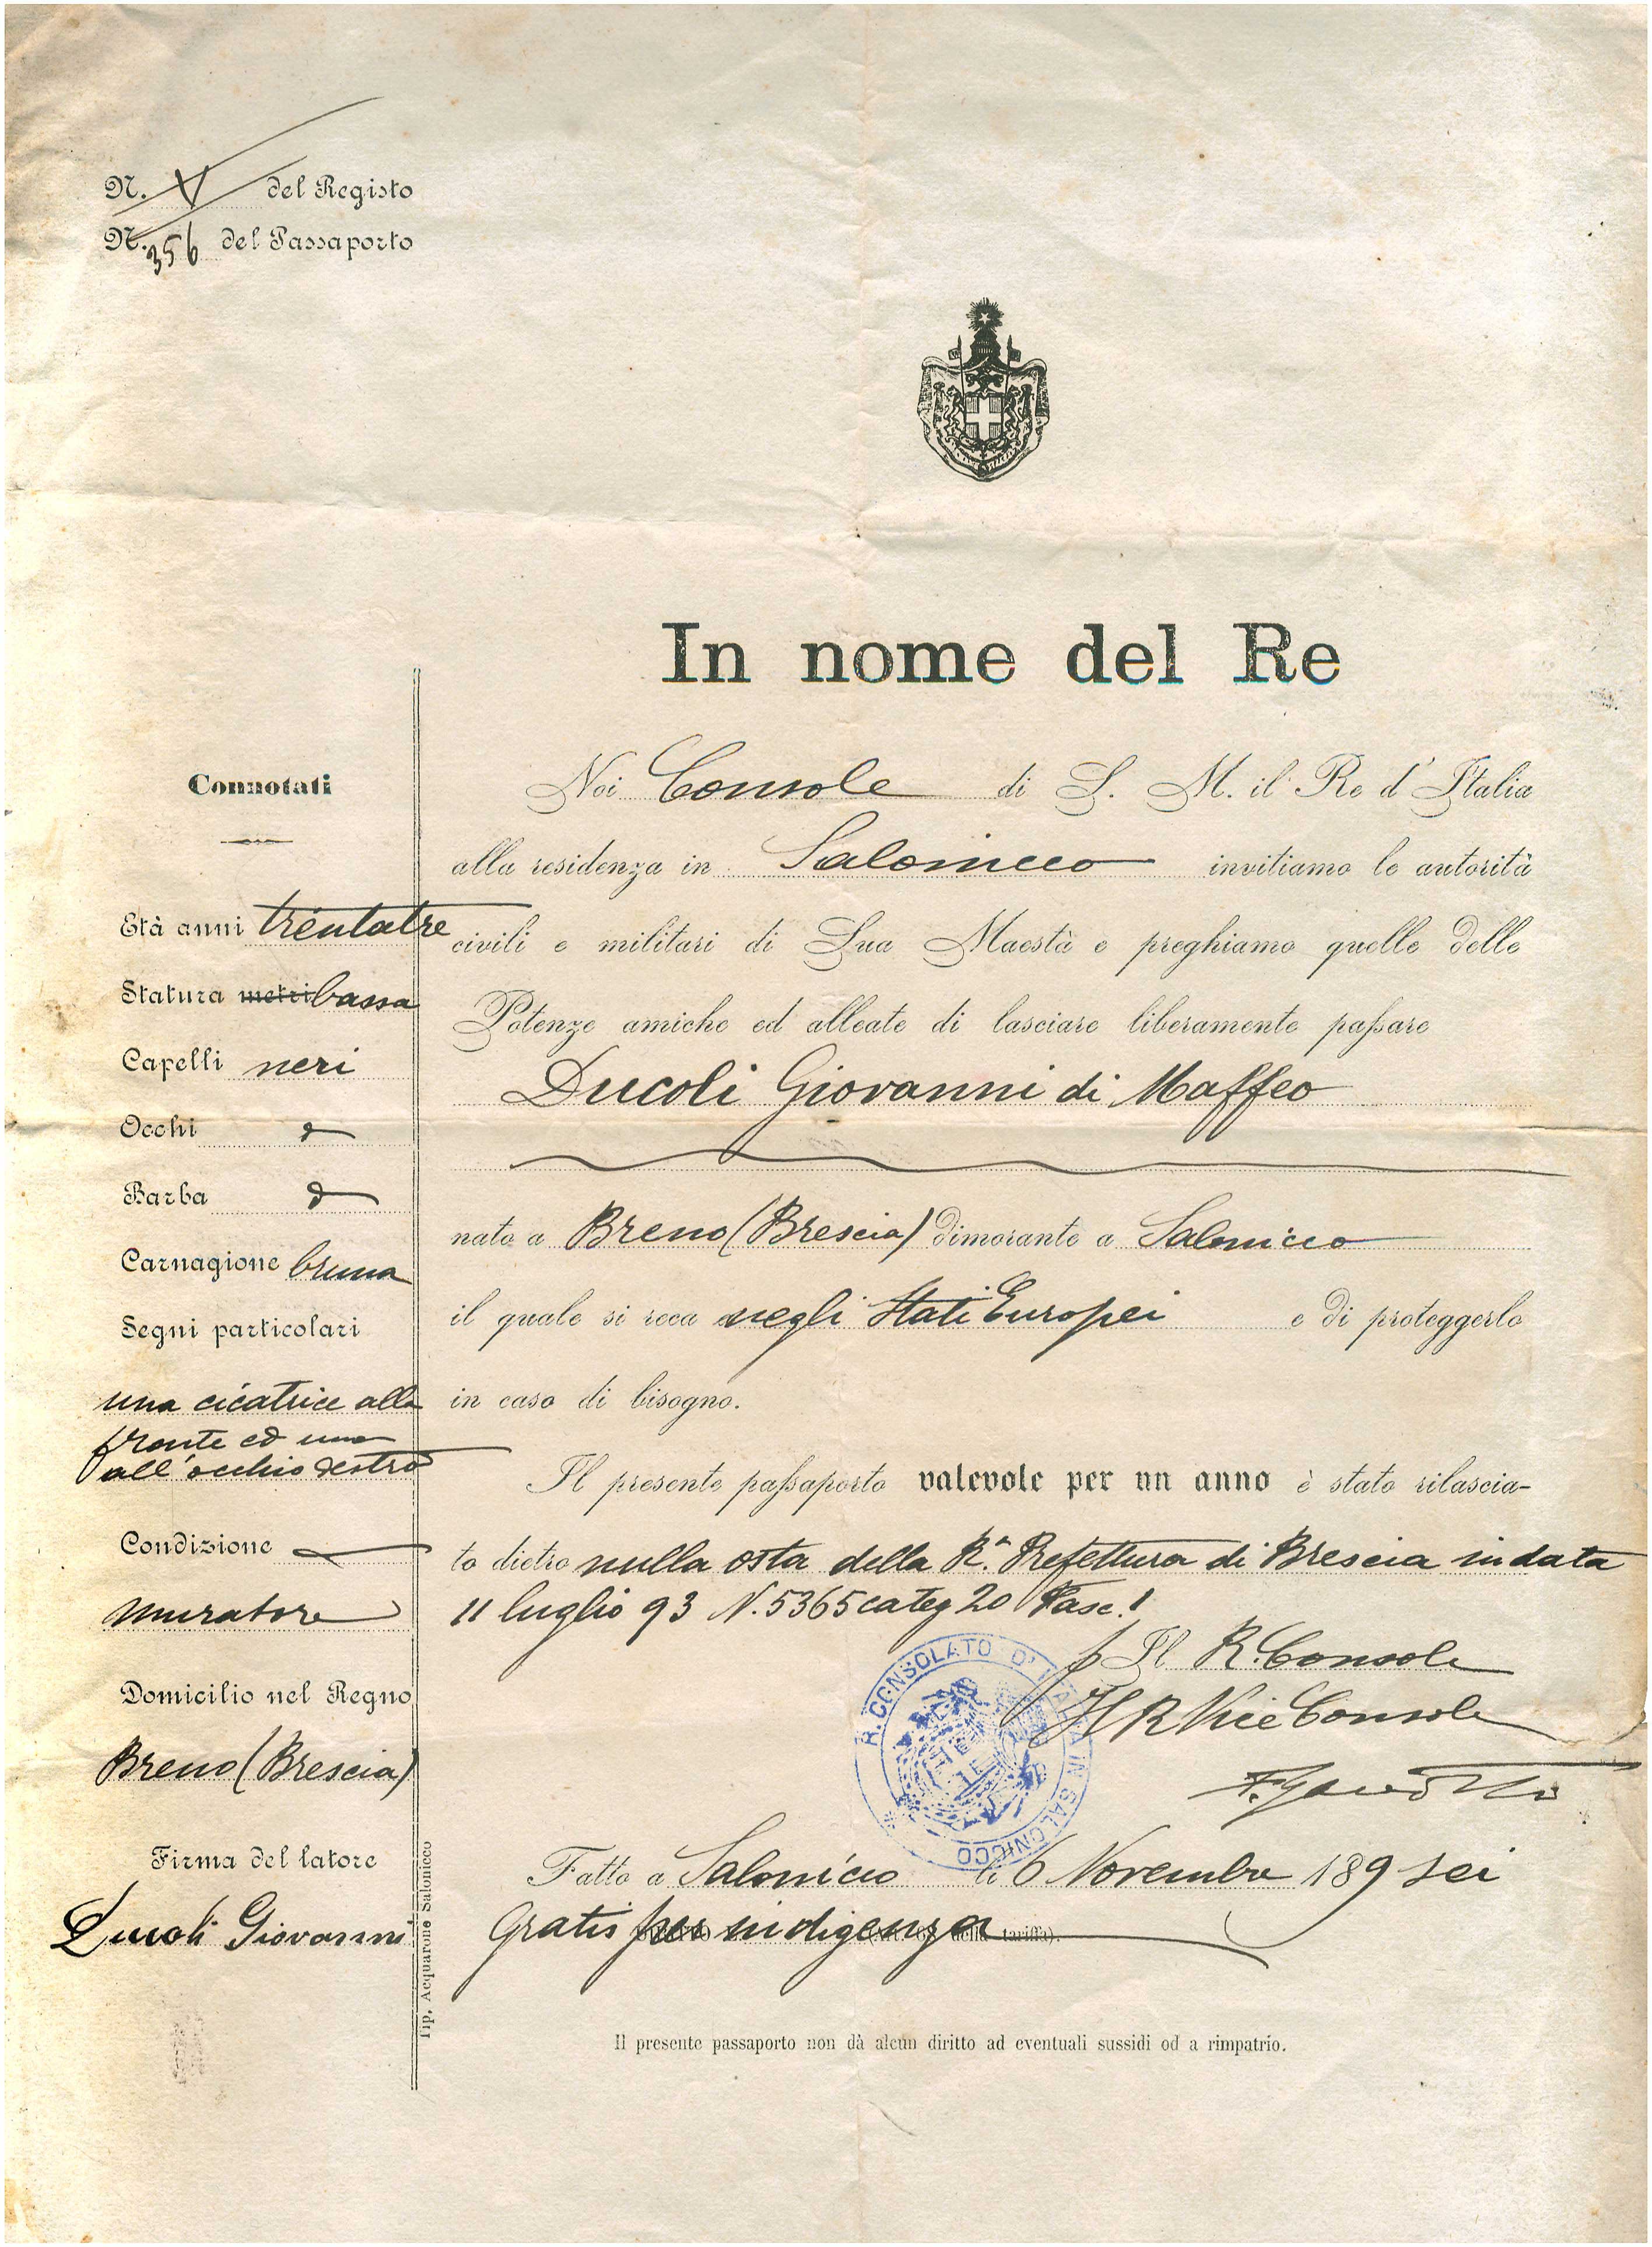 N. V del Registo
N. 356 del Passaporto
In nome del Re
Connotati
Età anni trentatre
Statura metri bassa
Capelli neri
Occhi d
Barba d
Carnagione bruna
Segni particolari
una cicatrice alla
fronte ed una
all'occhio destro
Condizione
muratore
Domicilio nel Regno
Breno (Brescia)
Firma del latore
Ducoli Giovanni
Tip. Acquarone Salonicco
Noi Console di S. M. il Re d'Italia
alla residenza in Salonicco invitiamo le autorità
civili e militari di Sua Maestà e preghiamo quelle delle
Potenze amiche ed alleate di lasciare liberamente passare
Ducoli Giovanni di Maffeo
nato a Breno (Brescia) dimorante a Salonicco
il quale si reca negli Stati Europei e di proteggerlo
in caso di bisogno.
Il presente passaporto valevole per un anno è stato rilascia-
to dietro nulla osta della R.ª Prefettura di Brescia in data
11 luglio 93 N. 5365 categ 20 Fasc. 1
p Il R. Console
Il R Vice Console
R. CONSOLATO D'ITALIA IN SALONICCO
Fatto a Salonicco li 6 Novembre 189 sei
Gratis per indigenza della tariffa).
Il presente passaporto non dà alcun diritto ad eventuali sussidi od a rimpatrio.